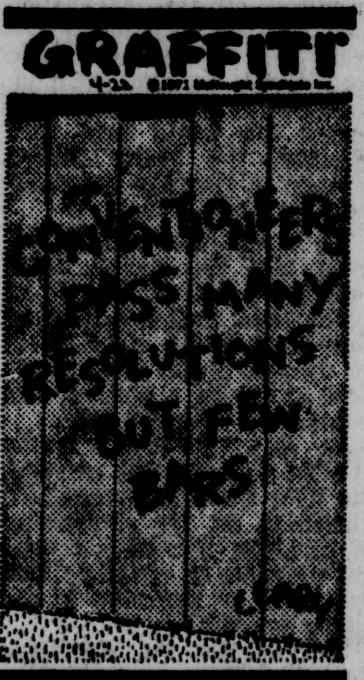 GRAFFITI
4-22 © 1971 McNaught Syndicate Inc.
CONVENTIONEERS
PASS MANY
RESOLUTIONS
BUT FEW
BARS
LEARY